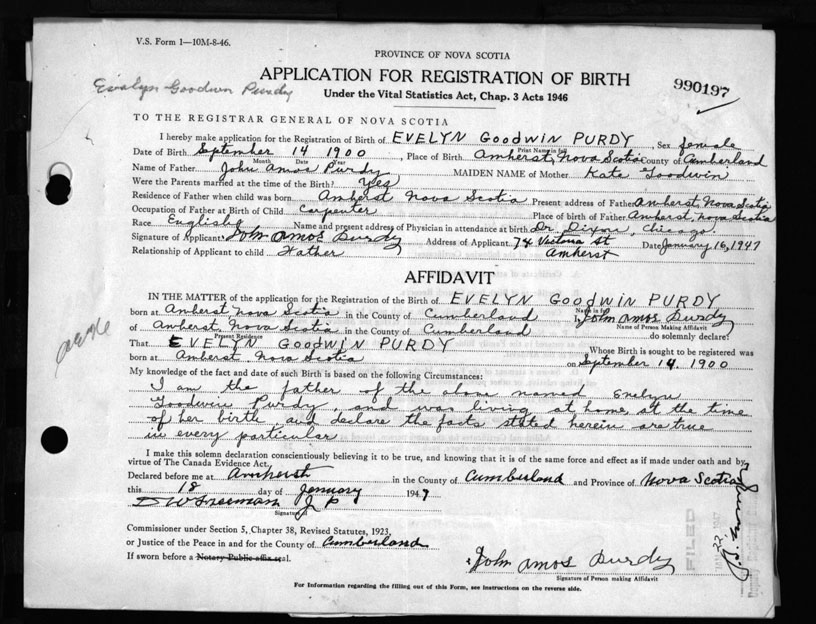 V.S. Form 1—10M-8-46.
PROVINCE OF NOVA SCOTIA
APPLICATION FOR REGISTRATION OF BIRTH
990197
Evalyn Goodwin Purdy
Under the Vital Statistics Act, Chap. 3 Acts 1946
TO THE REGISTRAR GENERAL OF NOVA SCOTIA
I hereby make application for the Registration of Birth of EVELYN GOODWIN PURDY, Sex female
Print Name in full
Date of Birth September 14 1900, Place of Birth Amherst, Nova Scotia County of Cumberland
Month Date Year
Name of Father John Amos Purdy MAIDEN NAME of Mother Kate Goodwin
Were the Parents married at the time of the Birth? Yes
Residence of Father when child was born Amherst Nova Scotia Present address of Father Amherst, Nova Scotia
Occupation of Father at Birth of Child Carpenter Place of birth of Father Amherst, Nova Scotia
Race English Name and present address of Physician in attendance at birth Dr. Dixon, Chicago.
Signature of Applicant John Amos Purdy Address of Applicant 74 Victoria St Date January 16, 1947
Relationship of Applicant to child Father Amherst
AFFIDAVIT
IN THE MATTER of the application for the Registration of the Birth of EVELYN GOODWIN PURDY
Name in full
born at Amherst Nova Scotia in the County of Cumberland I, John Amos Purdy
Name of Person Making Affidavit
of Amherst, Nova Scotia in the County of Cumberland do solemnly declare:
Present Residence
That EVELYN GOODWIN PURDY Whose Birth is sought to be registered was
born at Amherst Nova Scotia on September 14 1900
My knowledge of the fact and date of such Birth is based on the following Circumstances:
I am the father of the above named Evelyn
Goodwin Purdy, and was living at home at the time
of her birth, and declare the facts stated herein are true
in every particular
I make this solemn declaration conscientiously believing it to be true, and knowing that it is of the same force and effect as if made under oath and by
virtue of The Canada Evidence Act.
Declared before me at Amherst in the County of Cumberland and Province of Nova Scotia
this 18 day of January 1947
D W Freeman J P
Signature
Commissioner under Section 5, Chapter 38, Revised Statutes, 1923,
or Justice of the Peace in and for the County of Cumberland
If sworn before a Notary Public affix seal.
John Amos Purdy
Signature of Person making Affidavit
FILED
For Information regarding the filling out of this Form, see Instructions on the reverse side.